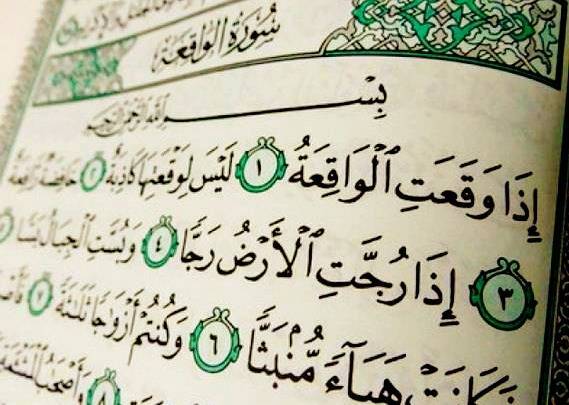 سُورَةُ الوَاقِعَةِ
بِسْمِ ٱللَّهِ ٱلرَّحْمَٰنِ ٱلرَّحِيمِ
إِذَا وَقَعَتِ ٱلْوَاقِعَةُ ١ لَيْسَ لِوَقْعَتِهَا كَاذِبَةٌ ٢ خَافِضَةٌ رَّافِعَةٌ
٣ إِذَا رُجَّتِ ٱلْأَرْضُ رَجًّا ٤ وَبُسَّتِ ٱلْجِبَالُ بَسًّا
فَكَانَتْ هَبَآءً مُّنۢبَثًّا ٦ وَكُنتُمْ أَزْوَٰجًا ثَلَٰثَةً ٧
٨ وَأَصْحَٰبُ ٱلْمَشْـَٔمَةِ